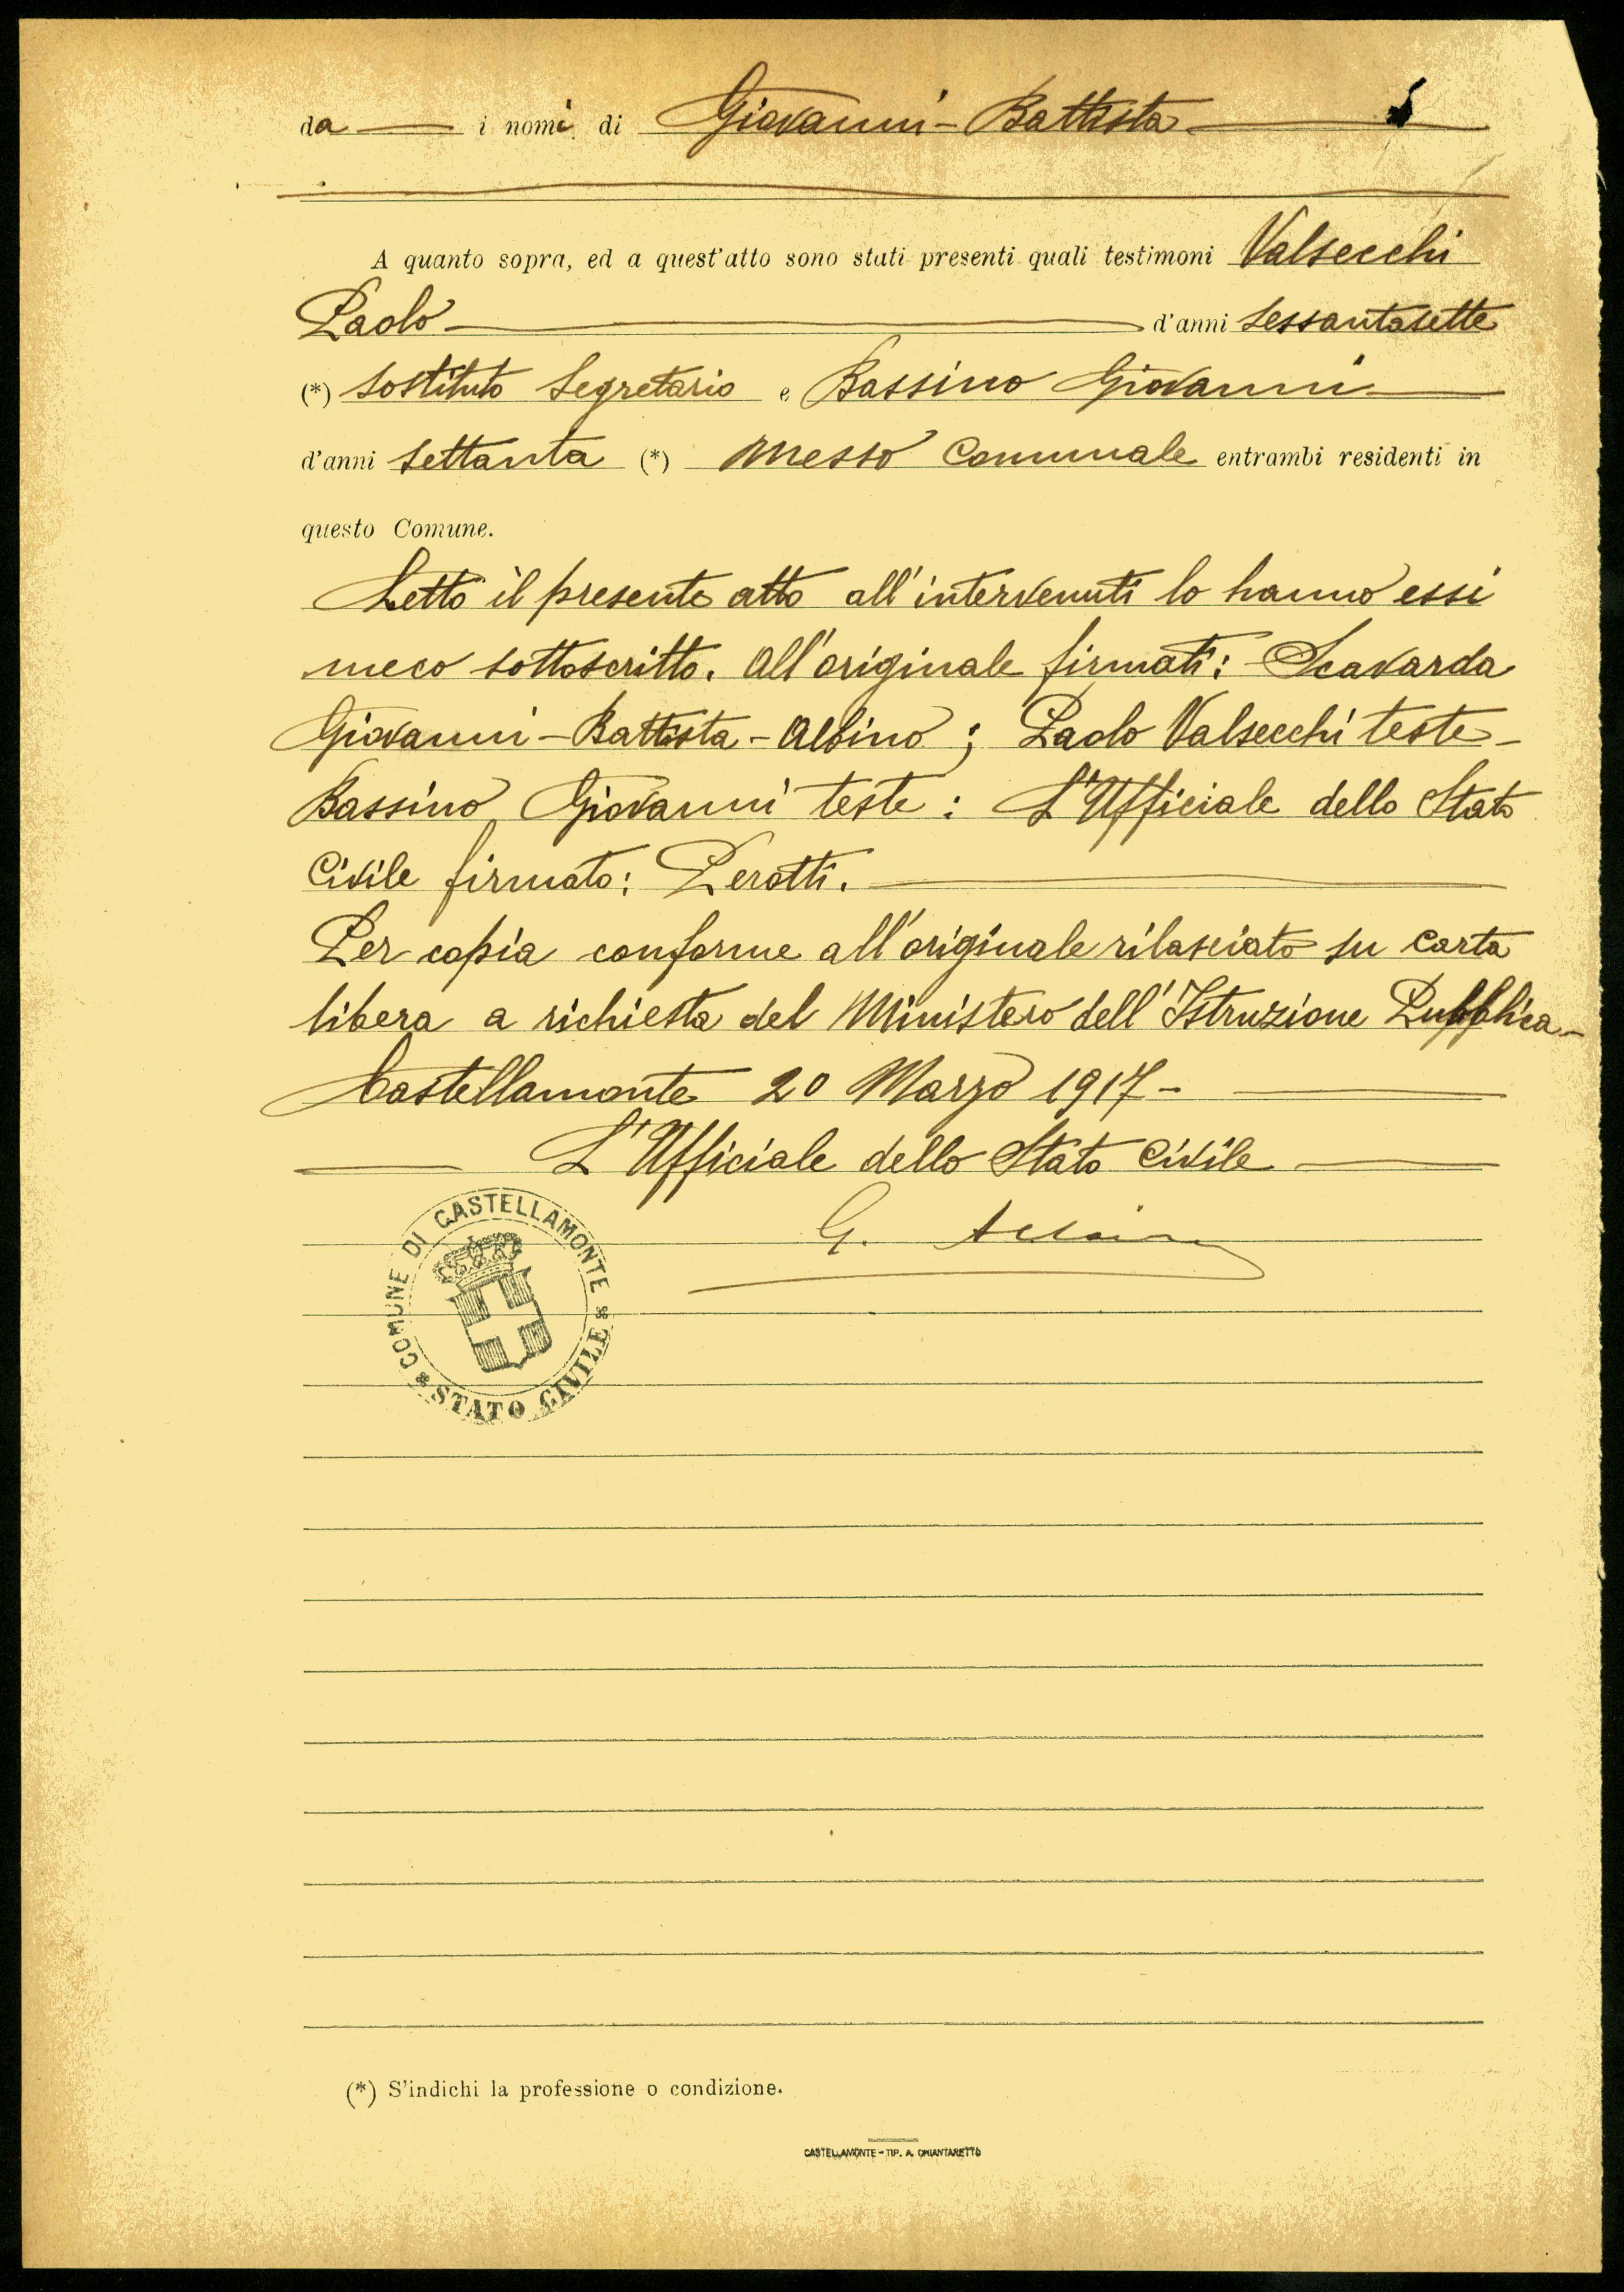 da — i nomi di Giovanni-Battista
A quanto sopra, ed a quest'atto sono stati presenti quali testimoni Valsecchi
Paolo — d'anni sessantasette
(*) sostituto Segretario e Bassino Giovanni
d'anni settanta (*) Messo Comunale entrambi residenti in
questo Comune.
Letto il presente atto all'intervenuti lo hanno essi
meco sottoscritto. All'originale firmati: Scavarda
Giovanni-Battista-Albino; Paolo Valsecchi teste-
Bassino Giovanni teste: L'Ufficiale dello Stato
Civile firmato: Perotti.
Per copia conforme all'originale rilasciato su carta
libera a richiesta del Ministero dell'Istruzione Pubblica-
Castellamonte 20 Marzo 1917-
L'Ufficiale dello Stato Civile
G.
COMUNE DI CASTELLAMONTE
STATO CIVILE
(*) S'indichi la professione o condizione.
CASTELLAMONTE - TIP. A. CHIANTARETTO